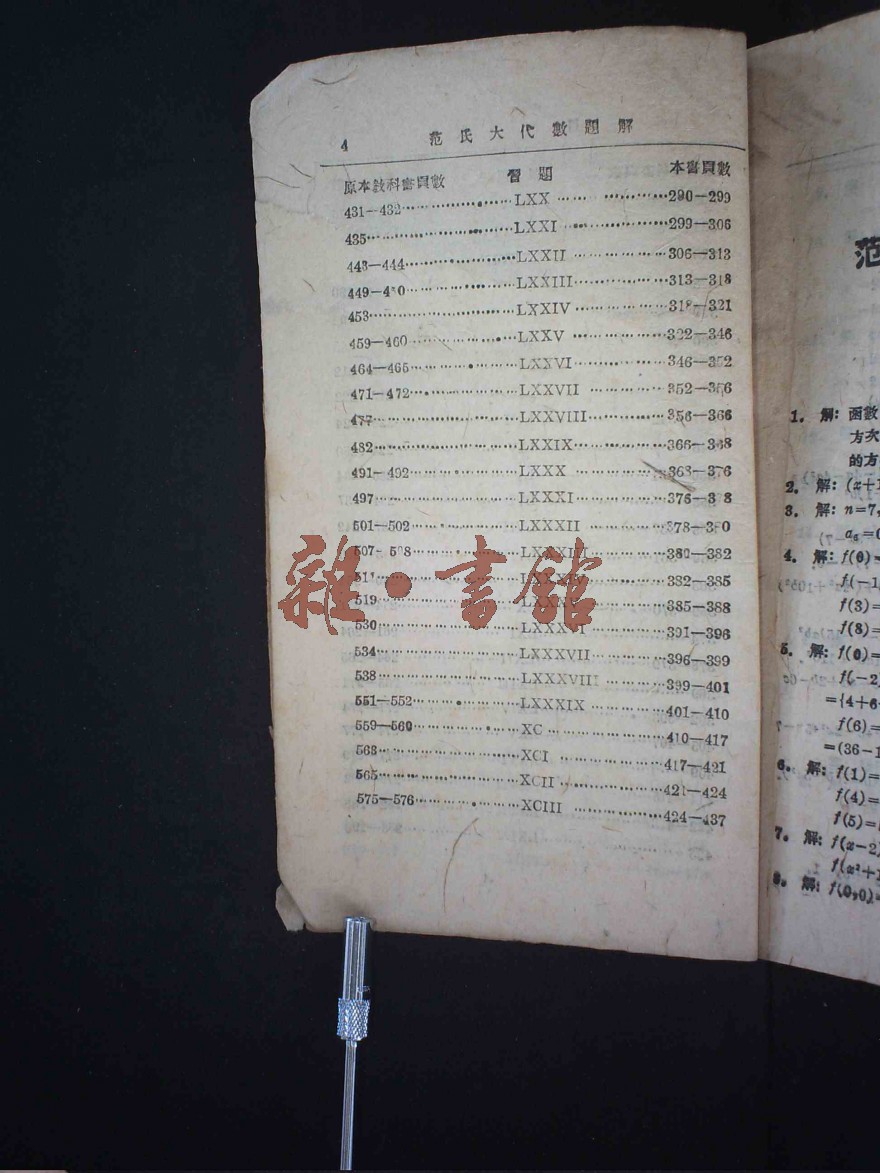 4 范氏大代數題解
原本敎科書頁數 習題 本書頁數
431—432 LXX 290—299
435 LXXI 299—306
443—444 LXXII 306—313
449—450 LXXIII 313—318
453 LXXIV 318—321
459—460 LXXV 322—346
464—465 LXXVI 346—352
471—472 LXXVII 352—356
477 LXXVIII 356—366
482 LXXIX 366—368
491—492 LXXX 368—376
497 LXXXI 376—378
501—502 LXXXII 378—380
507—508 LXXXIII 380—382
LXXXIV 382—385
519 LXXXV 385—388
530 LXXXVI 391—396
534 LXXXVII 396—399
538 LXXXVIII 399—401
551—552 LXXXIX 401—410
559—560 XC 410—417
563 XCI 417—421
565 XCII 421—424
575—576 XCIII 424—437
雜•書館
范
1. 解: 函數
方次
的方
2. 解: (x+1
3. 解: n=7,
a₆=0
4. 解: f(0)=
f(-1
f(3)=
f(8)=
5. 解: f(0)=
f(-2)
={4+6
f(6)=
=(36-1
6. 解: f(1)=
f(4)=
f(5)=
7. 解: f(x-2)
f(x²+1
8. 解: f(0,0)=